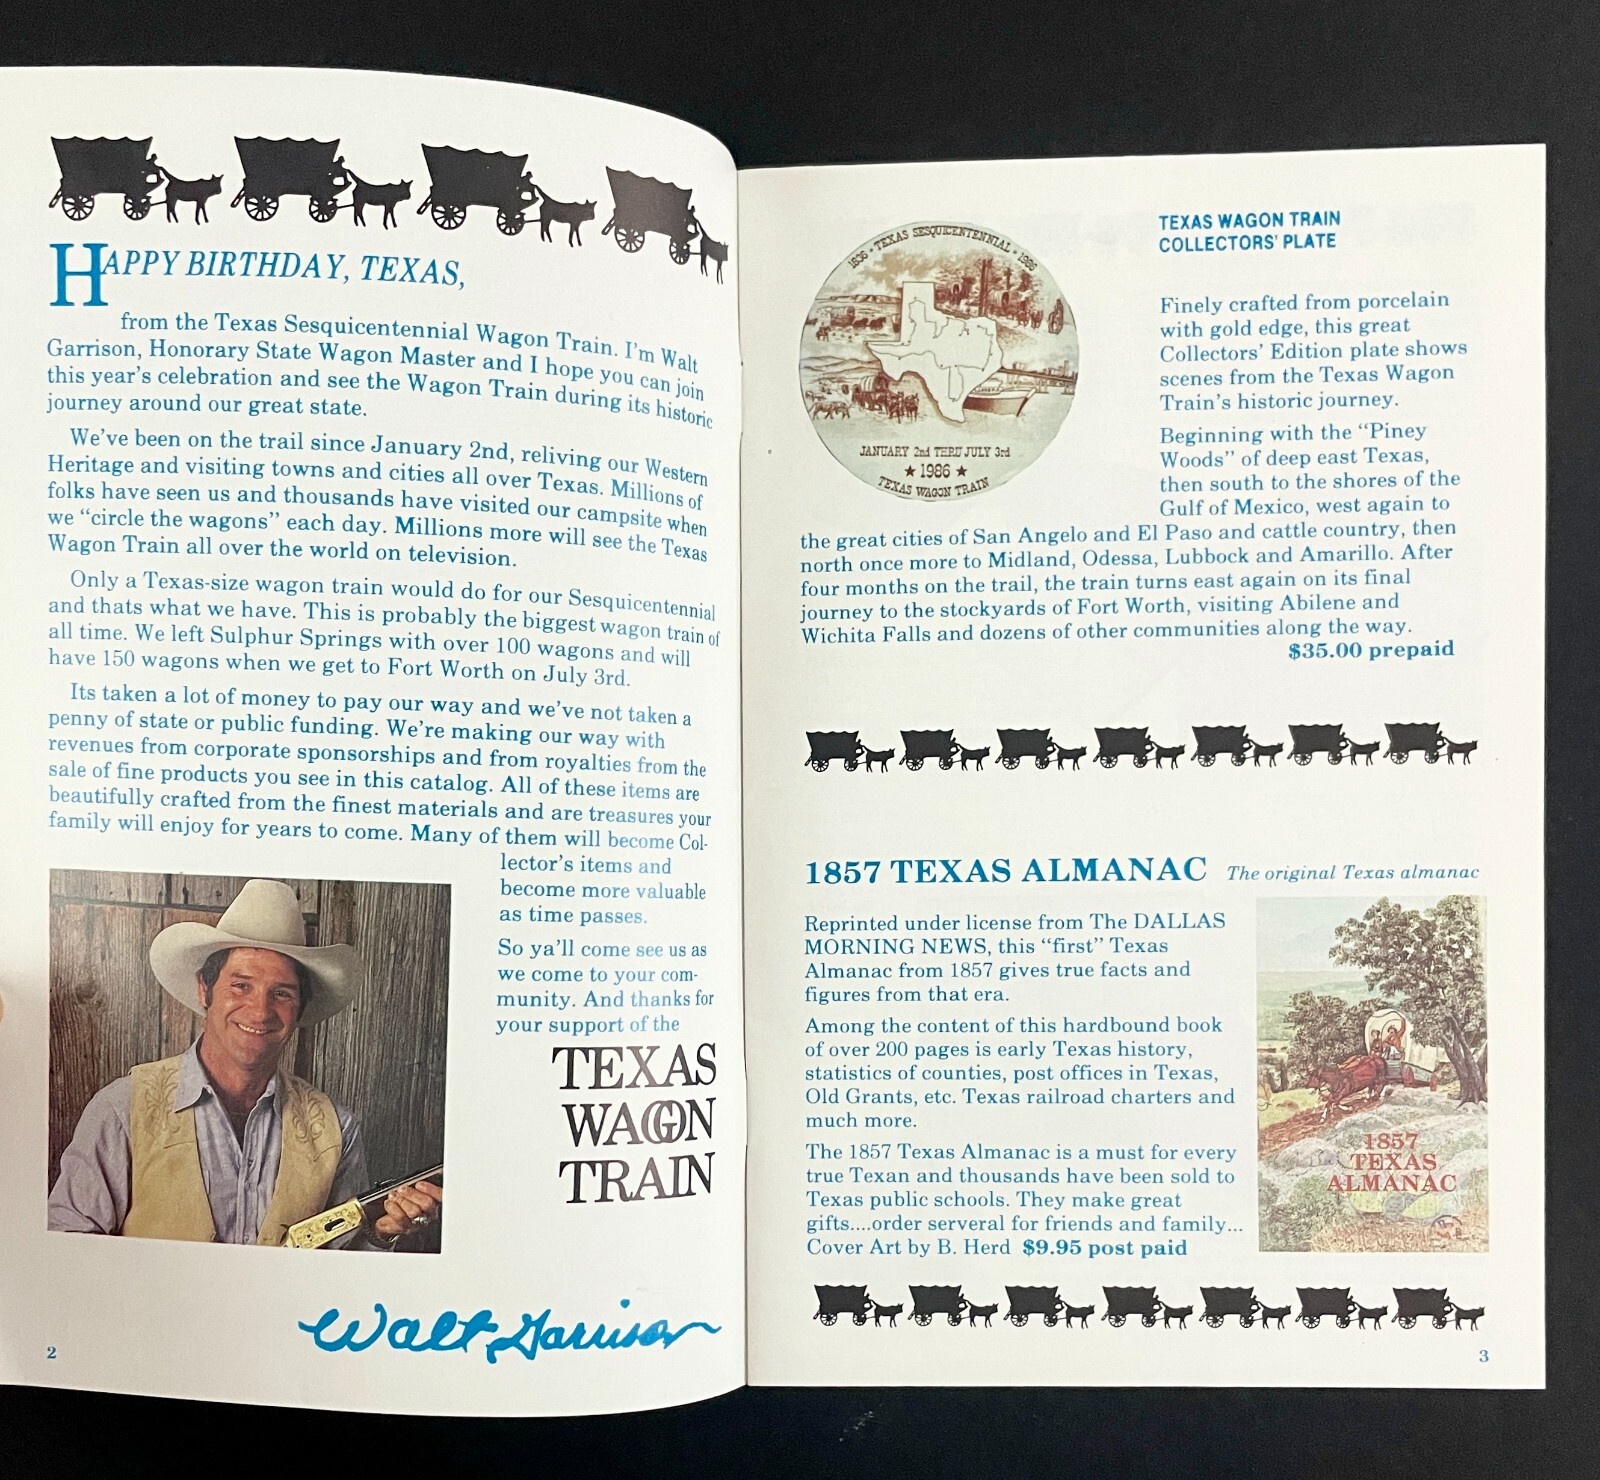 HAPPY BIRTHDAY, TEXAS,
from the Texas Sesquicentennial Wagon Train. I'm Walt
Garrison, Honorary State Wagon Master and I hope you can join
this year's celebration and see the Wagon Train during its historic
journey around our great state.
We've been on the trail since January 2nd, reliving our Western
Heritage and visiting towns and cities all over Texas. Millions of
folks have seen us and thousands have visited our campsite when
we "circle the wagons" each day. Millions more will see the Texas
Wagon Train all over the world on television.
Only a Texas-size wagon train would do for our Sesquicentennial
and thats what we have. This is probably the biggest wagon train of
all time. We left Sulphur Springs with over 100 wagons and will
have 150 wagons when we get to Fort Worth on July 3rd.
Its taken a lot of money to pay our way and we've not taken a
penny of state or public funding. We're making our way with
revenues from corporate sponsorships and from royalties from the
sale of fine products you see in this catalog. All of these items are
beautifully crafted from the finest materials and are treasures your
family will enjoy for years to come. Many of them will become Col-
lector's items and
become more valuable
as time passes.
So ya'll come see us as
we come to your com-
munity. And thanks for
your support of the
TEXAS
WAGON
TRAIN
Walt Garrison
2
1836 • TEXAS SESQUICENTENNIAL • 1986
JANUARY 2nd THRU JULY 3rd
★ 1986 ★
TEXAS WAGON TRAIN
TEXAS WAGON TRAIN
COLLECTORS' PLATE
Finely crafted from porcelain
with gold edge, this great
Collectors' Edition plate shows
scenes from the Texas Wagon
Train's historic journey.
Beginning with the "Piney
Woods" of deep east Texas,
then south to the shores of the
Gulf of Mexico, west again to
the great cities of San Angelo and El Paso and cattle country, then
north once more to Midland, Odessa, Lubbock and Amarillo. After
four months on the trail, the train turns east again on its final
journey to the stockyards of Fort Worth, visiting Abilene and
Wichita Falls and dozens of other communities along the way.
$35.00 prepaid
1857 TEXAS ALMANAC The original Texas almanac
Reprinted under license from The DALLAS
MORNING NEWS, this "first" Texas
Almanac from 1857 gives true facts and
figures from that era.
Among the content of this hardbound book
of over 200 pages is early Texas history,
statistics of counties, post offices in Texas,
Old Grants, etc. Texas railroad charters and
much more.
The 1857 Texas Almanac is a must for every
true Texan and thousands have been sold to
Texas public schools. They make great
gifts....order serveral for friends and family...
Cover Art by B. Herd $9.95 post paid
1857
TEXAS
ALMANAC
3